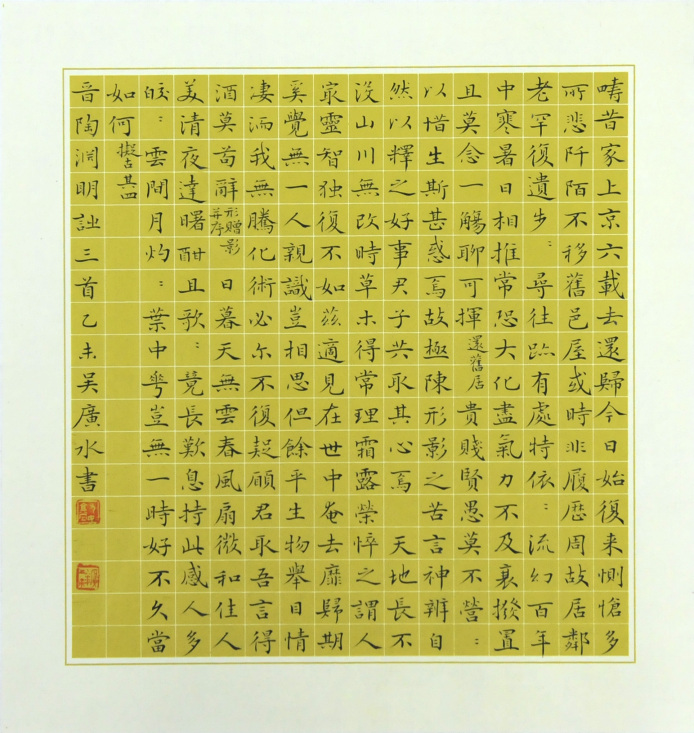 疇昔家上京六載去還歸今日始復来惻愴多
所悲阡陌不移舊邑屋或時非履歷周故居鄰
老罕復遺步：尋往跡有處特依：流幻百年
中寒暑日相推常恐大化盡氣力不及衰撥置
且莫念一觴聊可揮還舊居貴賤賢愚莫不營：
以惜生斯甚惑焉故極陳形影之苦言神辨自
然以釋之好事君子共取其心焉 天地長不
没山川無改時草木得常理霜露榮悴之謂人
冣靈智独復不如茲適見在世中奄去靡歸期
奚覺無一人親識豈相思但餘平生物舉目情
凄洏我無騰化術必尔不復疑願君取吾言得
酒莫苟辭形贈影并序 日暮天無雲春風扇微和佳人
美清夜達曙酣且歌：竟長歎息持此感人多
皎：雲閒月灼：葉中華豈無一時好不久當
如何擬古其四
晉陶淵明詩三首乙未吳廣水書